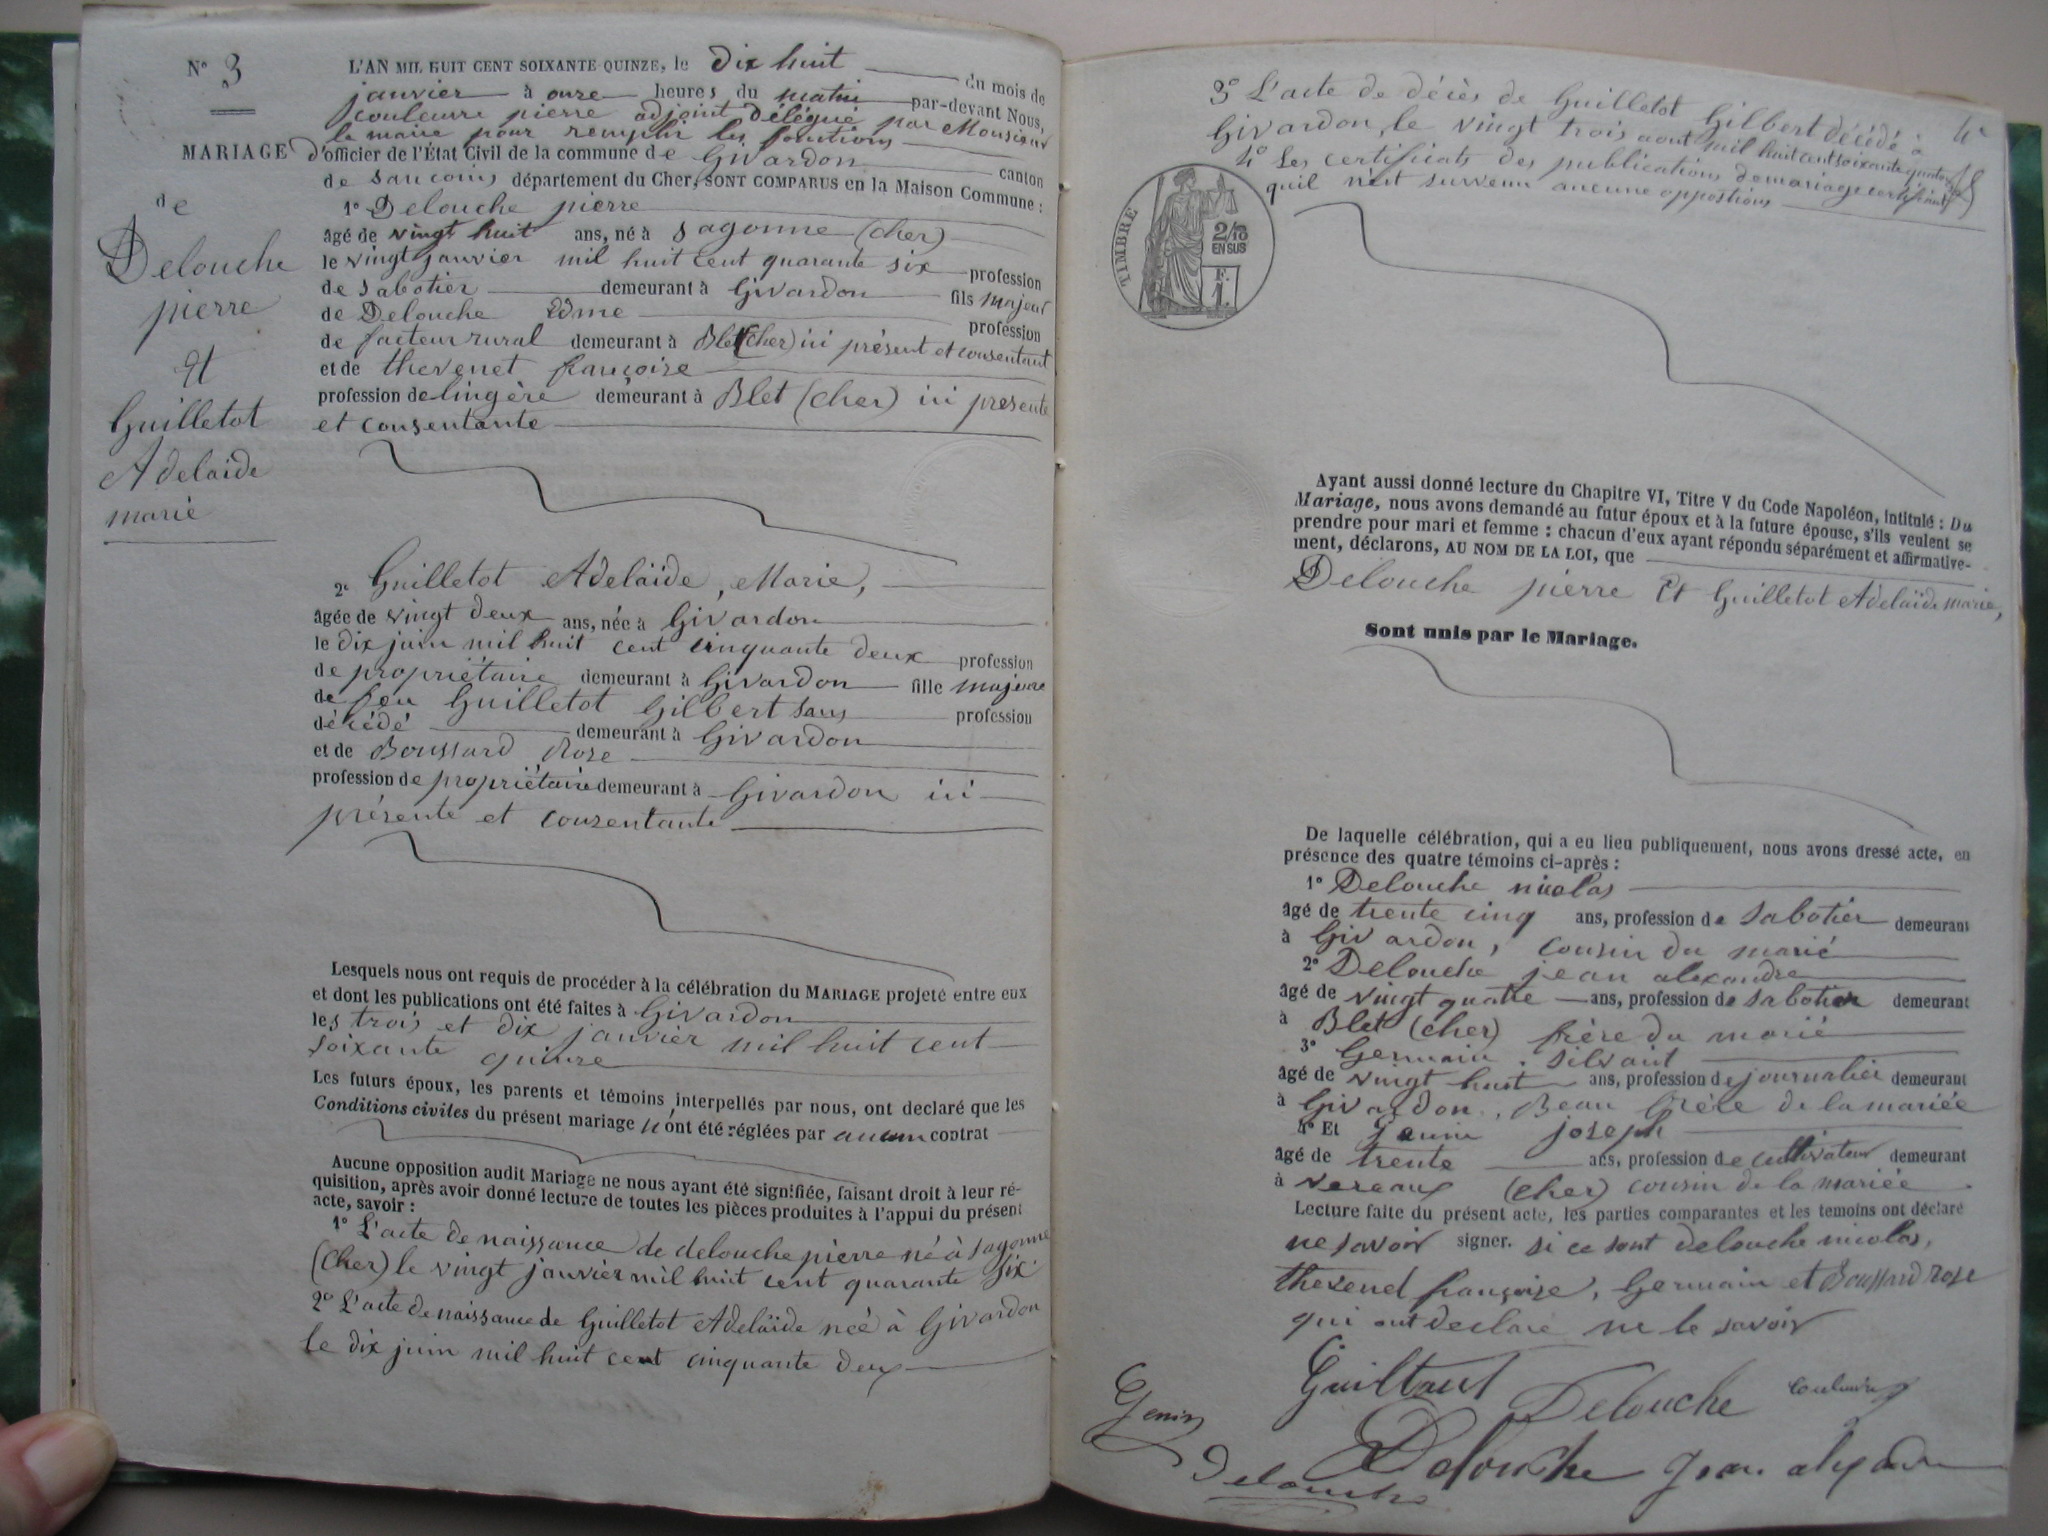 N° 3
MARIAGE
de
Delouche
pierre
et
Guilletot
Adelaide
marie
L'AN MIL HUIT CENT SOIXANTE-QUINZE, le dix huit du mois de
janvier à onze heures du matin par-devant Nous,
couleuvre pierre adjoint délégué par Monsieur
le maire pour remplir les fonctions
d'officier de l'État Civil de la commune de Givardon canton
de sancoins département du Cher, SONT COMPARUS en la Maison Commune :
1° Delouche pierre
âgé de vingt huit ans, né à Sagonne (cher)
le vingt janvier mil huit cent quarante six profession
de sabotier demeurant à Givardon fils majeur
de Delouche Edme profession
de facteur rural demeurant à Blet (cher) ici présent et consentant
et de thevenet françoise
profession de lingère demeurant à Blet (cher) ici présente
et consentante
2° Guilletot Adelaïde, Marie,
âgée de vingt deux ans, née à Givardon
le dix juin mil huit cent cinquante deux profession
de propriétaire demeurant à Givardon fille majeure
de feu Guilletot Gilbert sans profession
décédé demeurant à Givardon
et de Boussard Rose
profession de propriétaire demeurant à Givardon ici
présente et consentante
Lesquels nous ont requis de procéder à la célébration du MARIAGE projeté entre eux
et dont les publications ont été faites à Givardon
les trois et dix janvier mil huit cent
soixante quinze
Les futurs époux, les parents et témoins interpellés par nous, ont declaré que les
Conditions civiles du présent mariage n'ont été réglées par aucun contrat
Aucune opposition audit Mariage ne nous ayant été signifiée, faisant droit à leur ré-
quisition, après avoir donné lecture de toutes les pièces produites à l'appui du présent
acte, savoir :
1° L'acte de naissance de delouche pierre né à Sagonne
(Cher) le vingt janvier mil huit cent quarante six
2° L'acte de naissance de Guilletot Adelaïde née à Givardon
le dix juin mil huit cent cinquante deux
3° L'acte de décès de Guilletot Gilbert décédé à
Givardon, le vingt trois aout mil huit cent soixante quatorze
4° Les certificats des publications de mariage certifiant
quil n'est survenu aucune oppositions
TIMBRE
2/10
EN SUS
F.
1.
Ayant aussi donné lecture du Chapitre VI, Titre V du Code Napoléon, intitulé : Du
Mariage, nous avons demandé au futur époux et à la future épouse, s'ils veulent se
prendre pour mari et femme : chacun d'eux ayant répondu séparément et affirmative-
ment, déclarons, AU NOM DE LA LOI, que
Delouche pierre Et Guilletot Adelaïde marie,
Sont unis par le Mariage.
De laquelle célébration, qui a eu lieu publiquement, nous avons dressé acte, en
présence des quatre témoins ci-après :
1° Delouche nicolas
âgé de trente cinq ans, profession de sabotier demeurant
à Givardon, cousin du marié
2° Delouche jean alexandre
âgé de vingt quatre ans, profession de sabotier demeurant
à Blet (cher) frère du marié
3° Germain Silvain
âgé de vingt huit ans, profession de journalier demeurant
à Givardon, Beau frère de la mariée
4° Et joseph
âgé de trente ans, profession de cultivateur demeurant
à Vereaux (cher) cousin de la mariée
Lecture faite du présent acte, les parties comparantes et les temoins ont déclaré
ne savoir signer. si ce sont delouche nicolas,
thevenet françoise, Germain et Boussard rose
qui ont declaré ne le savoir
Delouche couleuvre
Delouche Jean alexandre
Delouche